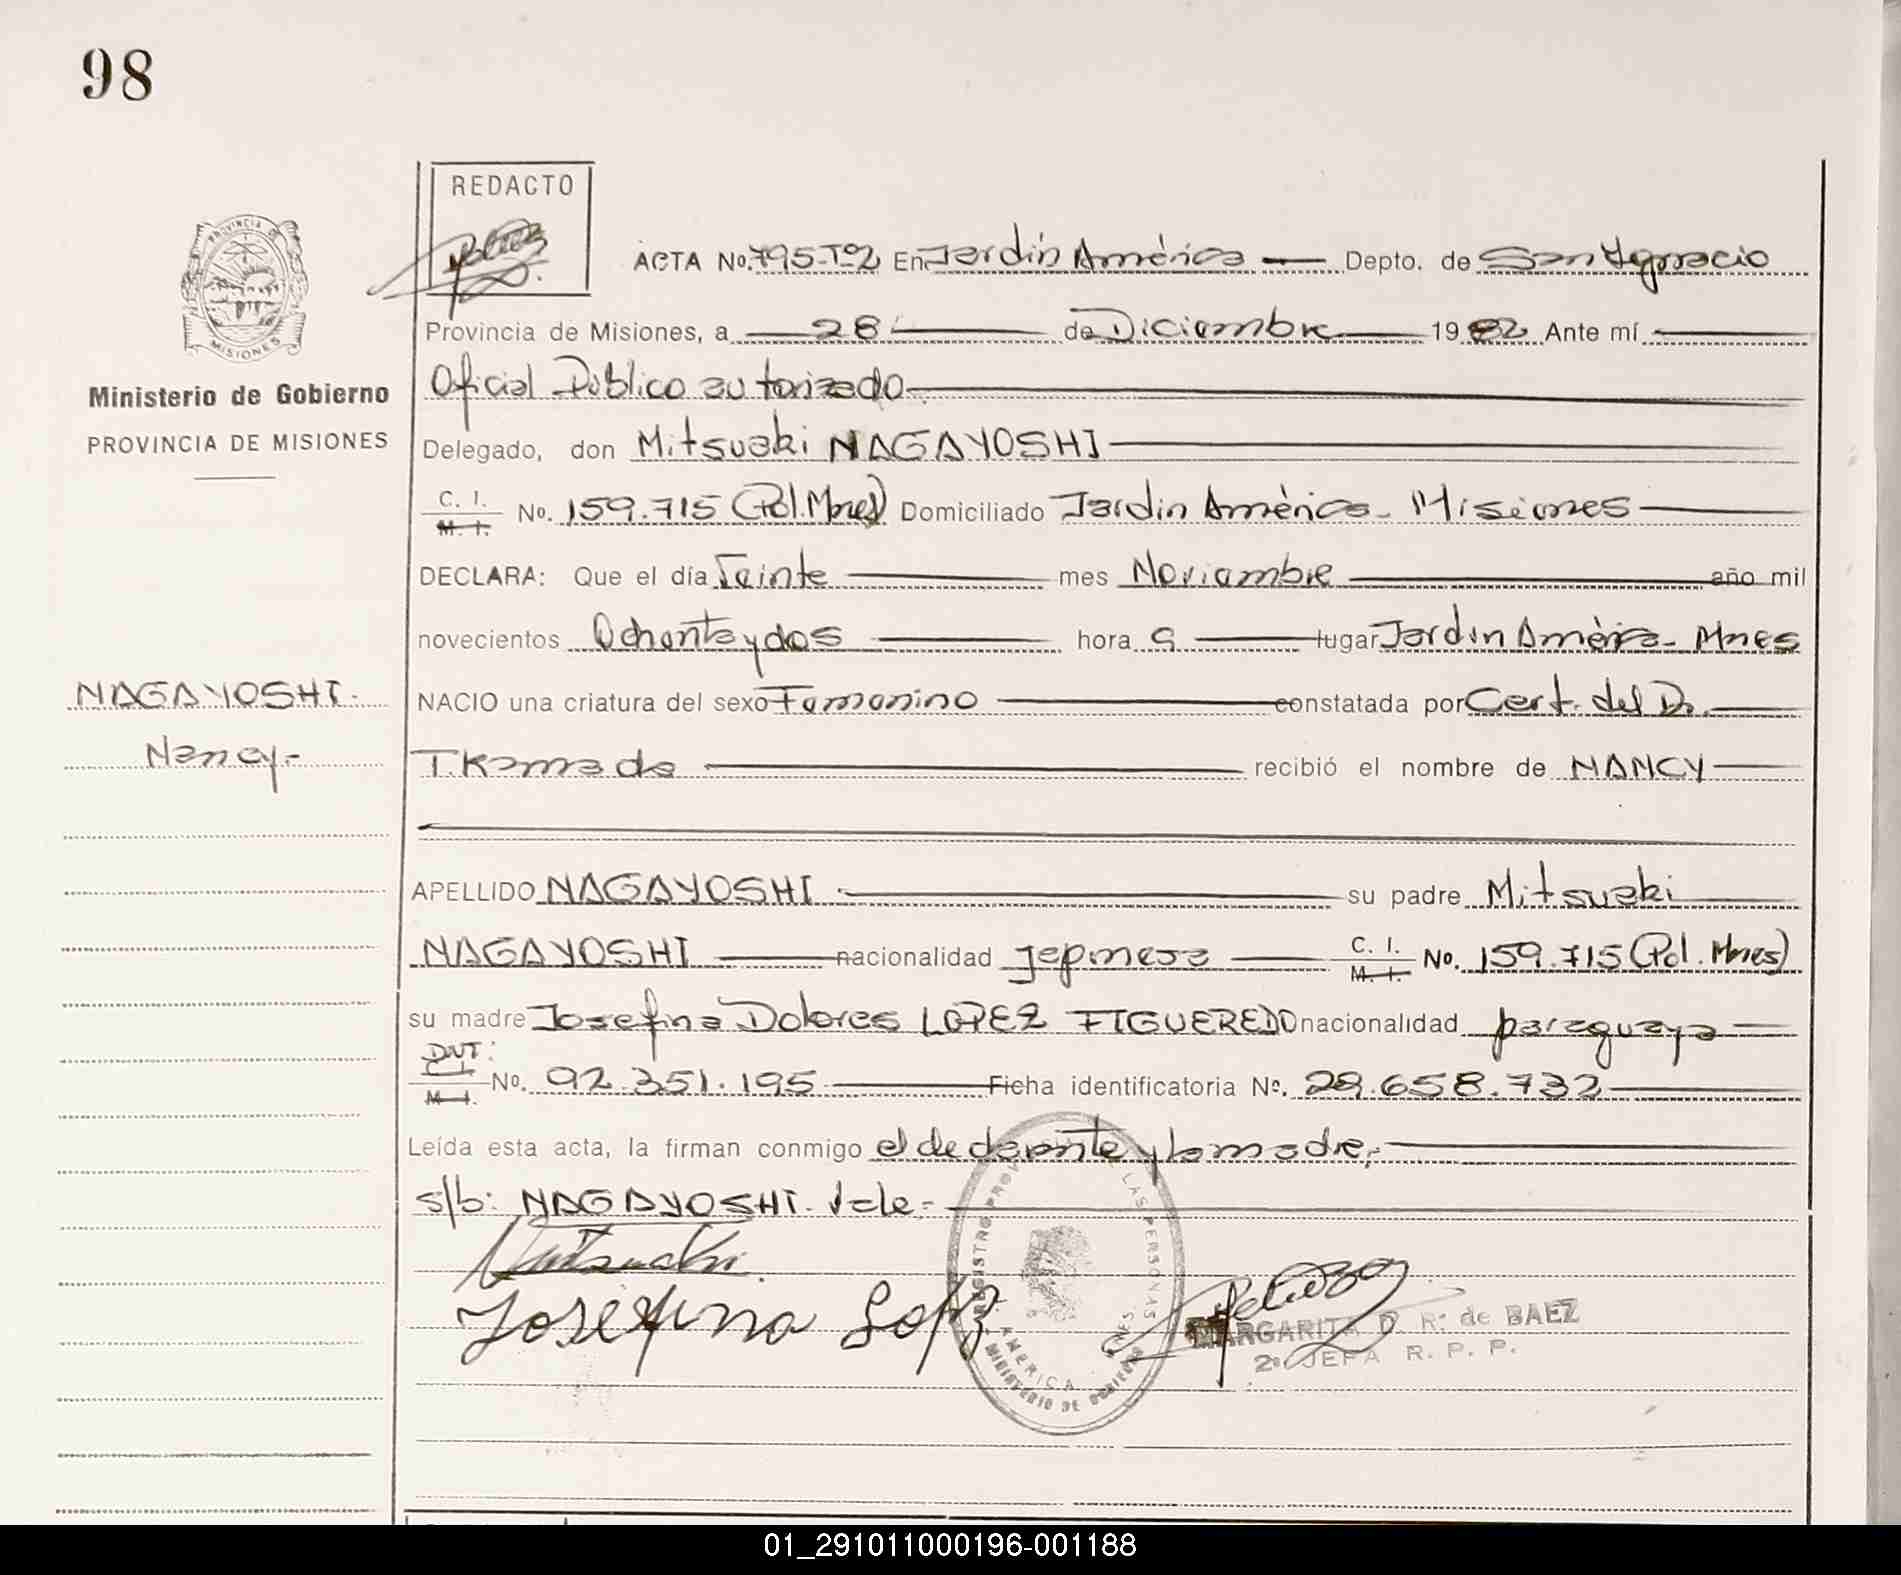 98
REDACTO
ACTA No. 795-Tº2 En Jardín América Depto. de San Ygnacio
Provincia de Misiones, a 28 de Diciembre 1982 Ante mí
Oficial Público autorizado
Delegado, don Mitsuaki NAGAYOSHI
C. I. M. I. No. 159.715 (Pol. Mnes) Domiciliado Jardín América - Misiones
DECLARA: Que el día Veinte mes Noviembre año mil
novecientos Ochenta y dos hora 9 lugar Jardín América - Mnes
NACIO una criatura del sexo Femenino constatada por Cert. del Dr.
T. Kamada recibió el nombre de NANCY
APELLIDO NAGAYOSHI su padre Mitsuaki
NAGAYOSHI nacionalidad japonesa C. I. M. I. No. 159.715 (Pol. Mnes)
su madre Josefina Dolores LOPEZ FIGUEREDO nacionalidad paraguaya
DNI: C. I. M. I. No. 92.351.195 Ficha identificatoria Nº. 29.658.732
Leída esta acta, la firman conmigo el declarante y la madre,-
s/b: NAGAYOSHI. Vale.-
Mitsuaki
Josefina Lopez
REGISTRO PROV LAS PERSONAS
AMERICA
MNES
MINISTERIO DE GOBIERNO
MARGARITA D. R. de BAEZ
2º JEFA R. P. P.
PROVINCIA DE
MISIONES
Ministerio de Gobierno
PROVINCIA DE MISIONES
NAGAYOSHI.
Nancy.-
01_291011000196-001188